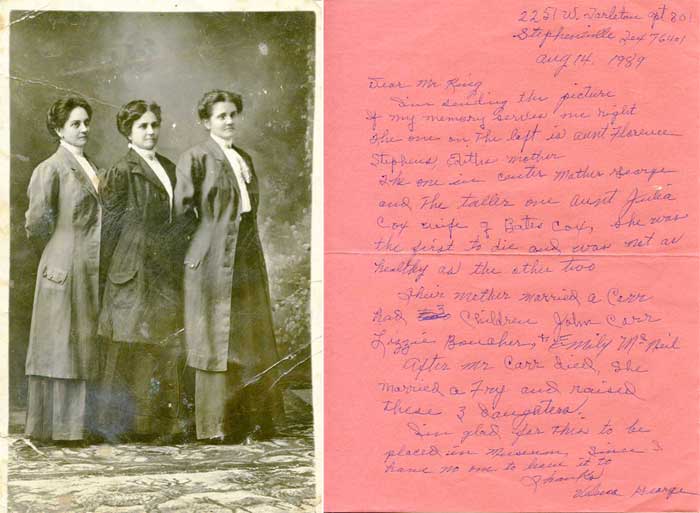 2251 W. Tarleton apt 801
Stephenville Tex 76401
Aug 14, 1989
Dear Mr King
I'm sending the picture
If my memory serves me right
The one on the left is aunt Florence
Stephens, Ediths mother
The one in center Mother George
and the taller one Aunt Julia
Cox wife of Bates Cox, she was
the first to die and was not as
healthy as the other two
Their mother married a Carr
had 3 Children John Carr
Lizzie Boucher, & Emily McNeil
After Mr Carr died, she
married a Fry and raised
these 3 daughters.
I'm glad for this to be
placed in Museum, since I
have no one to leave it to
Thanks
George